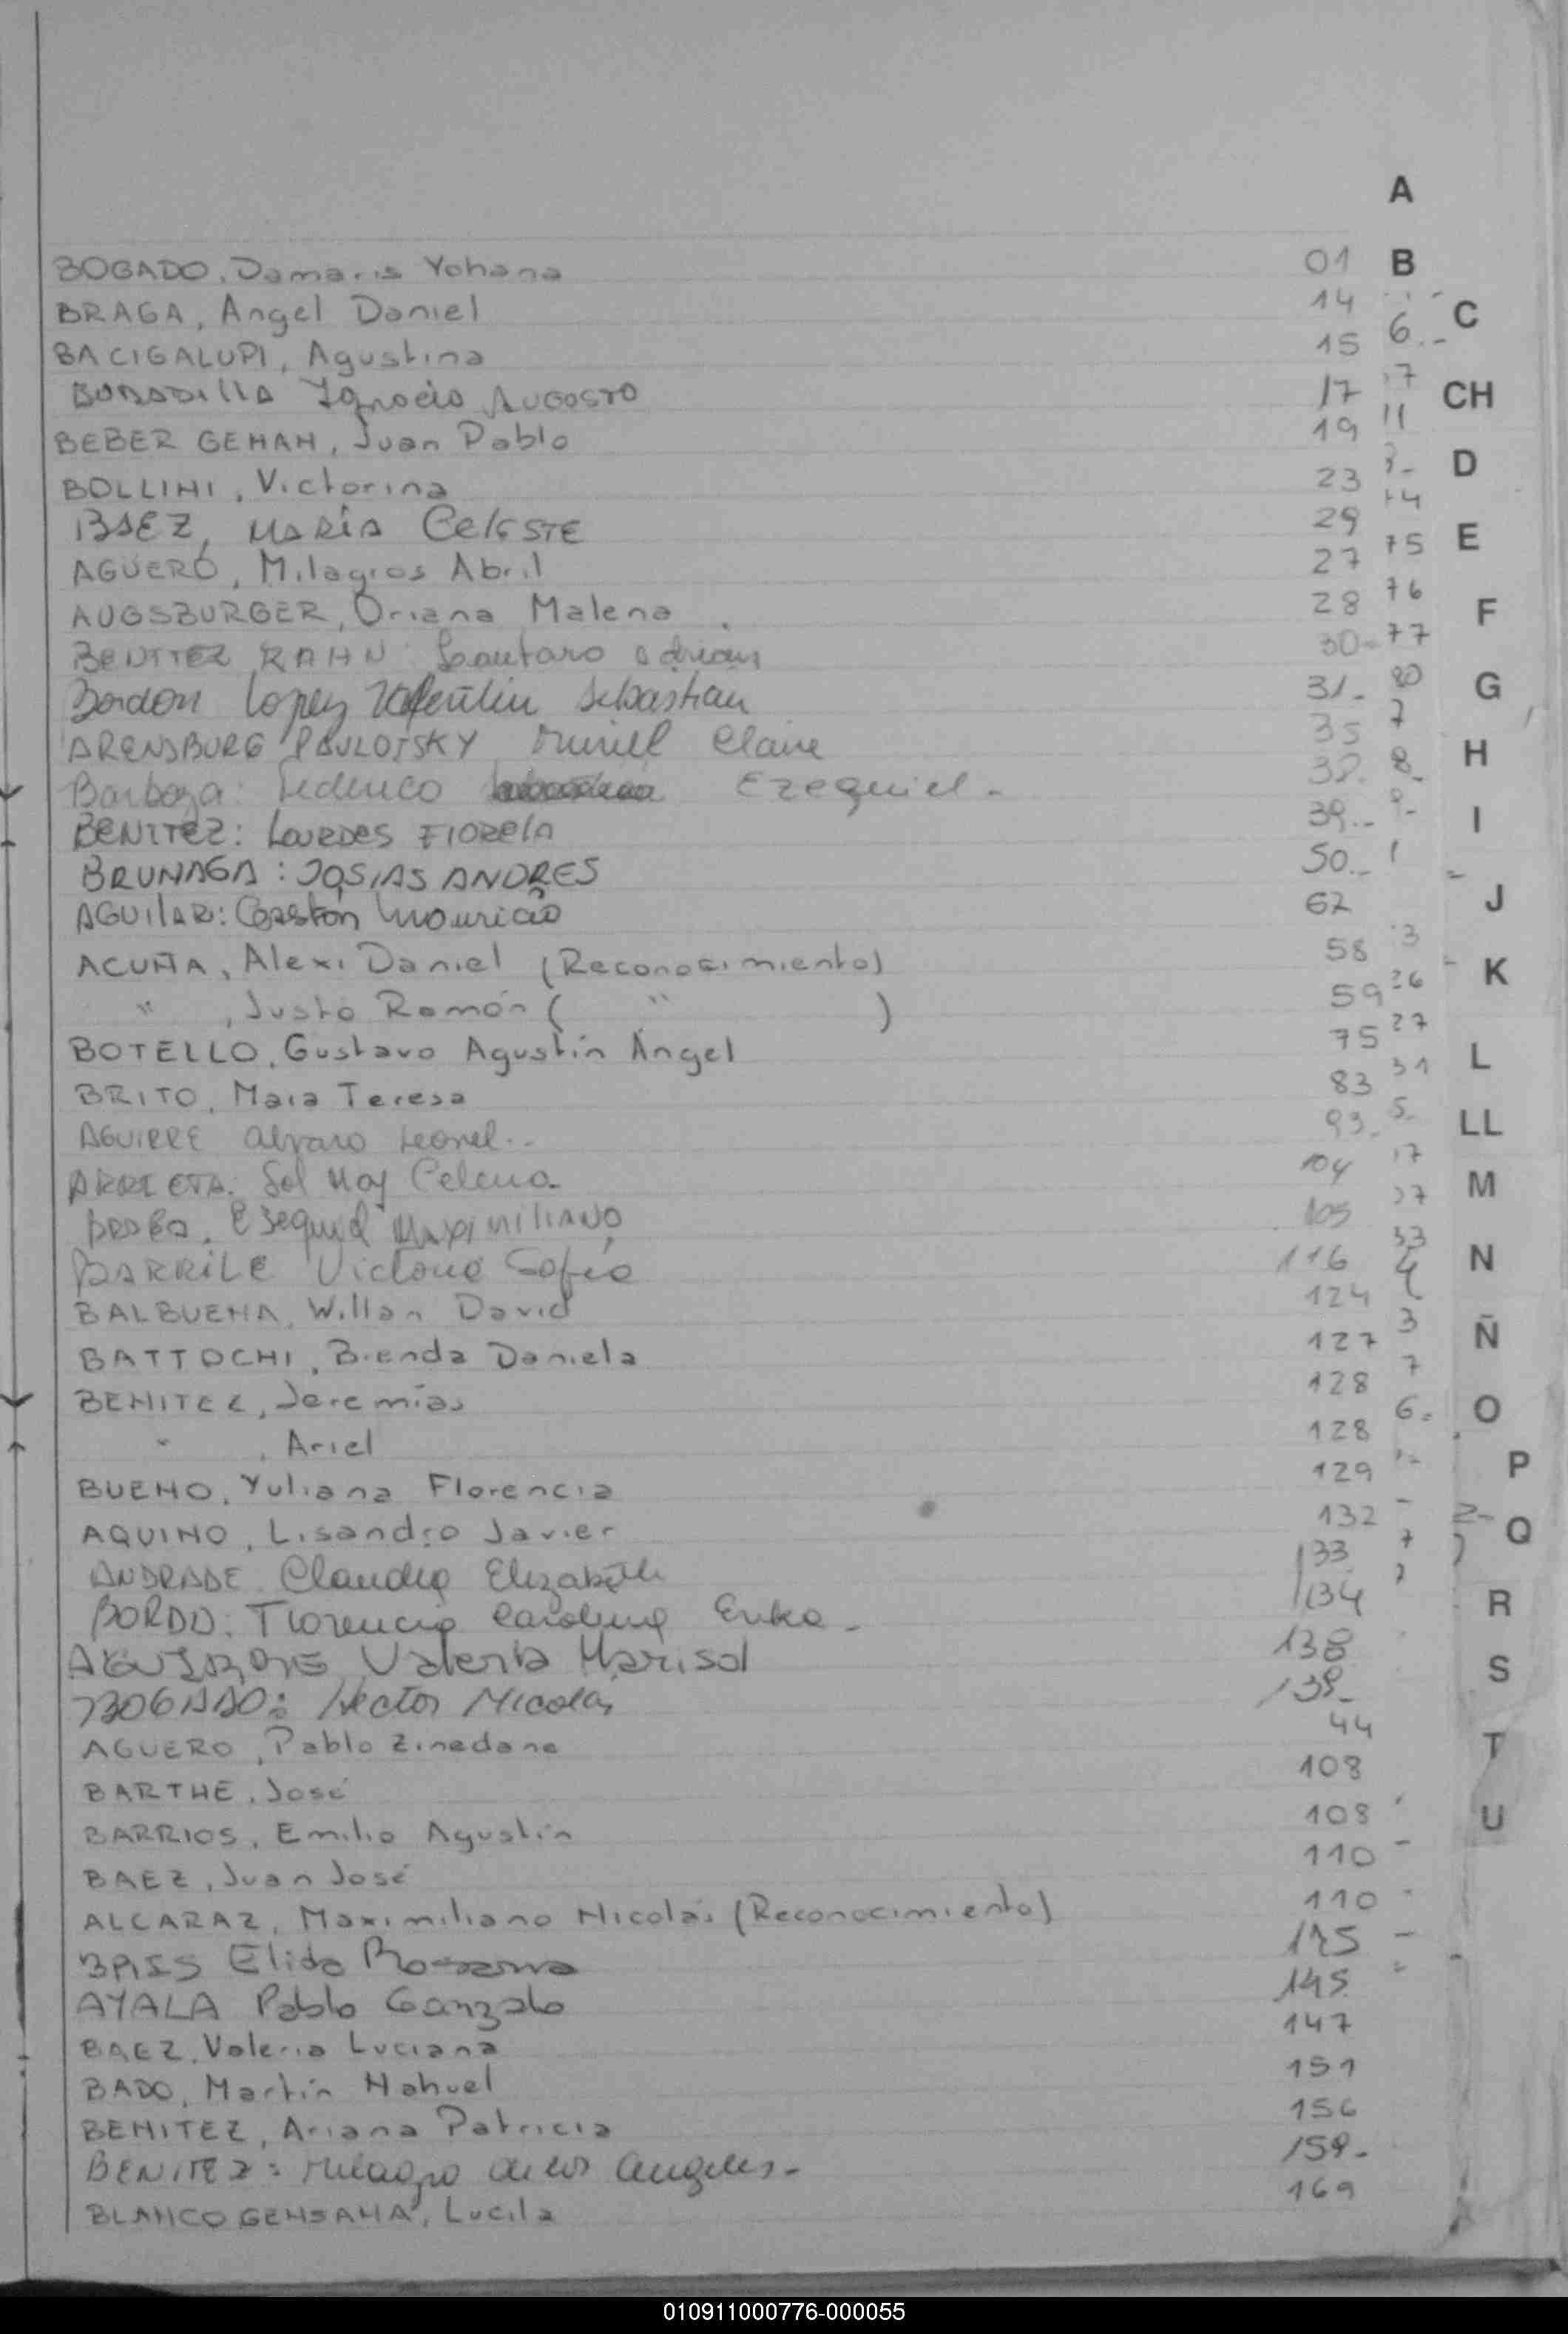 A
BOGADO, Damaris Yohana 01 B
BRAGA, Angel Daniel 14
C
BACIGALUPI, Agustina 15 6.-
BOBADILLA Ignacio AUGOSTO 17 17 CH
BEBER GEHAN, Juan Pablo 19 11
BOLLINI, Victorina 23 D
BAEZ, MARÍA CELESTE 29
AGÜERO, Milagros Abril 27 75 E
AUGSBURGER, Oriana Malena 28 76 F
BENITEZ RAHN Lautaro adrian 30- 77
Bordon Lopez Valentin Sebastian 31.- 80 G
ARENSBURG PAVLOTSKY Muriel Claire 35 7
Barboza: Federico Ezequiel.- 38. 8 H
BENITEZ: LOURDES FIORELA 39.- I
BRUNAGA: JOSIAS ANDRES 50.-
AGUILAR: Gastón Mauricio 62 J
ACUÑA, Alexi Daniel (Reconocimiento) 58 3 K
" , Justo Ramón ( " ) 59 26
BOTELLO, Gustavo Agustín Ángel 75 27 L
BRITO, Maia Teresa 83 31
AGUIRRE alvaro Leonel.- 93.- 5.- LL
ARRIETA. Sol May Celena. 104 17 M
Esequiel MAXIMILIANO 105 37
BARRILE Victoria Sofía 116 33 N
BALBUENA, Willan David 124 4
BATTOCHI, Brenda Daniela 127 3 Ñ
BENITEZ, Jeremías 128 7
" , Ariel 128 6.- O
BUENO, Yuliana Florencia 129 P
AQUINO, Lisandro Javier 132 2- Q
ANDRADE Claudia Elizabeth 133 7
BORDO: Florencia Carolina Erika.- 134 R
Valeria Marisol 138
BOGADO: Hector Nicolás 139.- S
AGUERO, Pablo Zinedane 44 T
BARTHE, José 108
BARRIOS, Emilio Agustín 108 U
BAEZ, Juan José 110
ALCARAZ, Maximiliano Nicolás (Reconocimiento) 110
Elida 145
AYALA Pablo Gonzalo 145
BAEZ, Valeria Luciana 147
BADO, Martín Nahuel 151
BENITEZ, Ariana Patricia 156
BENITEZ: Milagro de los angeles.- 159.-
BLANCO GENSANA, Lucila 169
010911000776-000055